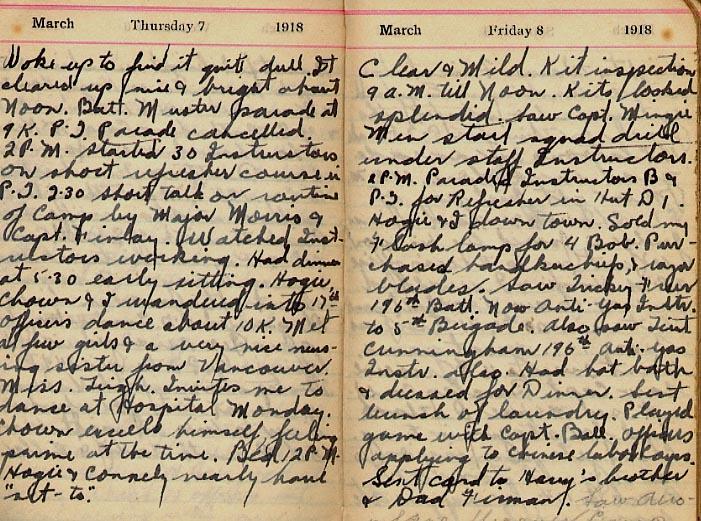 March Thursday 7 1918
Woke up to find it quite dull. It
cleared up nice & bright about
Noon. Batt. Muster parade at
9 K. P.T. Parade cancelled.
2 P.M. Started 30 Instructors
on short refresher course in
P.T. 2.30 short talk on routine
of Camp by Major Morris &
Capt. Finlay. Watched Inst-
ructors working. Had dinner
at 5.30 early sitting. Hogie,
Chown & I wandered into 17th
officers dance about 10 K. Met
a few girls & a very nice nurs-
ing sister from Vancouver
Miss. Leigh. Invites me to
dance at Hospital Monday.
Chown excells himself, feeling
prime at the time. Bed 12 P.M.
Hogie & Connely nearly have
"set-to".
March Friday 8 1918
Clear & Mild. Kit inspection
9 a.m. till Noon. Kits looked
splendid. Saw Capt. Mingie
Men start squad drill
under staff Instructors.
2 P.M. Parade Instructors B &
P.T. for Refresher in Hut D 1.
Hogie & I down town. Sold my
Flash lamp for 4 Bob. Pur-
chased handkerchiefs, & razor
blades. Saw
196th Batt. Now Anti-Gas Instr.
to 5th Brigade. Also saw Lieut
Cunningham 196th Anti-Gas
Instr. also. Had hot bath
& dressed for Dinner. Sent
bunch of laundry. Played
game with Capt. Ball. Officers
applying to Chinese labor corps.
Sent card to Harry's brother
& Dad Firman. Saw